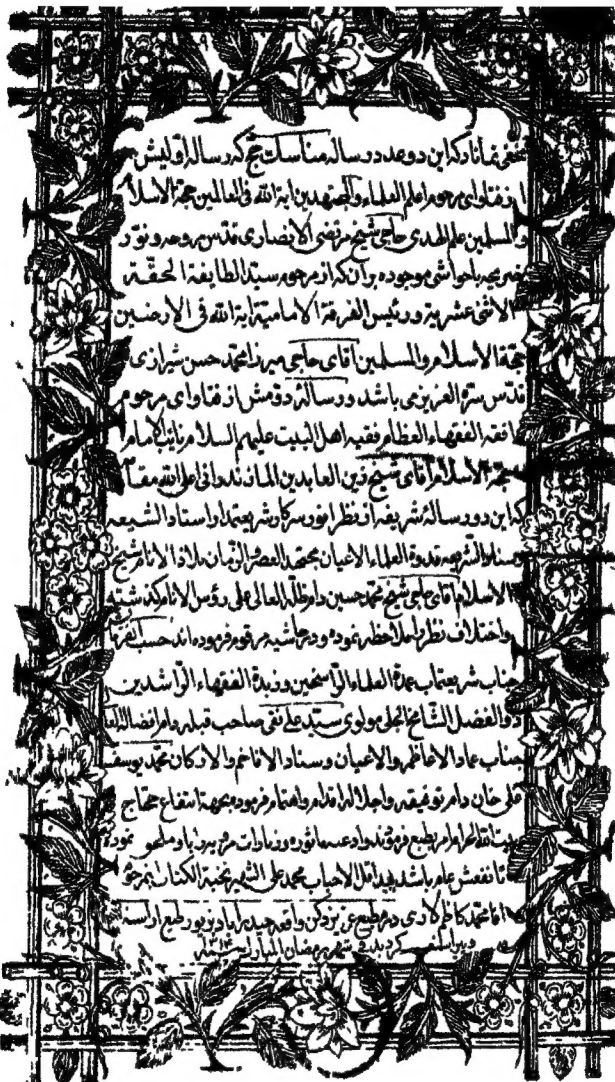 مخفی نماناد که این دو عدد رساله مناسک حج که رساله اولیش
از فتاوای مرحوم اعلم العلماء والمجتهدین آیة الله فی العالمین حجة الاسلام
والمسلمین علم الهدی حاجی شیخ مرتضی الانصاری قدّس روحه و نوّر
ضریحه با حواشی موجوده بر آن که از مرحوم سیّد الطایفة الحقّة
الاثنی عشریة و رئیس الفرقة الامامیة آیة الله فی الارضین
حجة الاسلام والمسلمین آقای حاجی میرزا محمد حسن شیرازی
قدّس سرّه العزیز می باشد و رسالهٔ دوّمش از فتاوای مرحوم
افقه الفقهاء العظام فقیه اهل البیت علیهم السلام نائب الامام
حجّة الاسلام آقای شیخ زین العابدین المازندرانی اعلی الله مقامه
که این دو رسالهٔ شریفه از نظر انور سرکار شریعتمدار استاد الشیعه
وسناد الشریعه قدوة العلماء الاعیان مجتهد العصر والزمان ملاذ الانام شیخ
الاسلام آقای حاجی شیخ محمد حسین دام ظلّه العالی علی رؤس الانام گذشته
و اختلاف نظر را ملاحظه نموده و در حاشیه مرقوم فرموده اند حسب الفرمایش
جناب شریعتمآب عمدة العلماء الرّاسخین و زبدة الفقهاء الرّاشدین
ذوالفضل الشّامخ الجلی مولوی سیّد علی نقی صاحب قبله دام افضاله
جناب عماد الاعاظم والاعیان وسناد الافاخم والارکان محمد یوسف
علی خان دام توفیقه واجلاله اقدام واهتمام فرموده بجهة انتفاع حجاج
بیت الله الحرام امر بطبع فرمودند وادعیه ماثوره و زیارات مرویه را باو ملحق نموده
تا نفعش عام باشد بید اقل الاحباب محمد علی الشهیر بنخبة الکتاب ابن مرحوم
آقا محمد کاظم لاری در مطبع عزیز دکن واقعه حیدرآباد بزیور طبع آراسته
و پیراسته گردید فی شهر رمضان المبارک